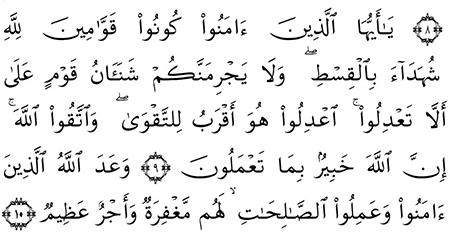 ﴿٨﴾ يَـٰٓأَيُّهَا ٱلَّذِينَ ءَامَنُوا۟ كُونُوا۟ قَوَّٰمِينَ لِلَّهِ
شُهَدَآءَ بِٱلْقِسْطِ ۖ وَلَا يَجْرِمَنَّكُمْ شَنَـَٔانُ قَوْمٍ عَلَىٰٓ
أَلَّا تَعْدِلُوا۟ ۚ ٱعْدِلُوا۟ هُوَ أَقْرَبُ لِلتَّقْوَىٰ ۖ وَٱتَّقُوا۟ ٱللَّهَ ۚ
إِنَّ ٱللَّهَ خَبِيرٌۢ بِمَا تَعْمَلُونَ ﴿٩﴾ وَعَدَ ٱللَّهُ ٱلَّذِينَ
ءَامَنُوا۟ وَعَمِلُوا۟ ٱلصَّـٰلِحَـٰتِ ۙ لَهُم مَّغْفِرَةٌ وَأَجْرٌ عَظِيمٌ ﴿١٠﴾